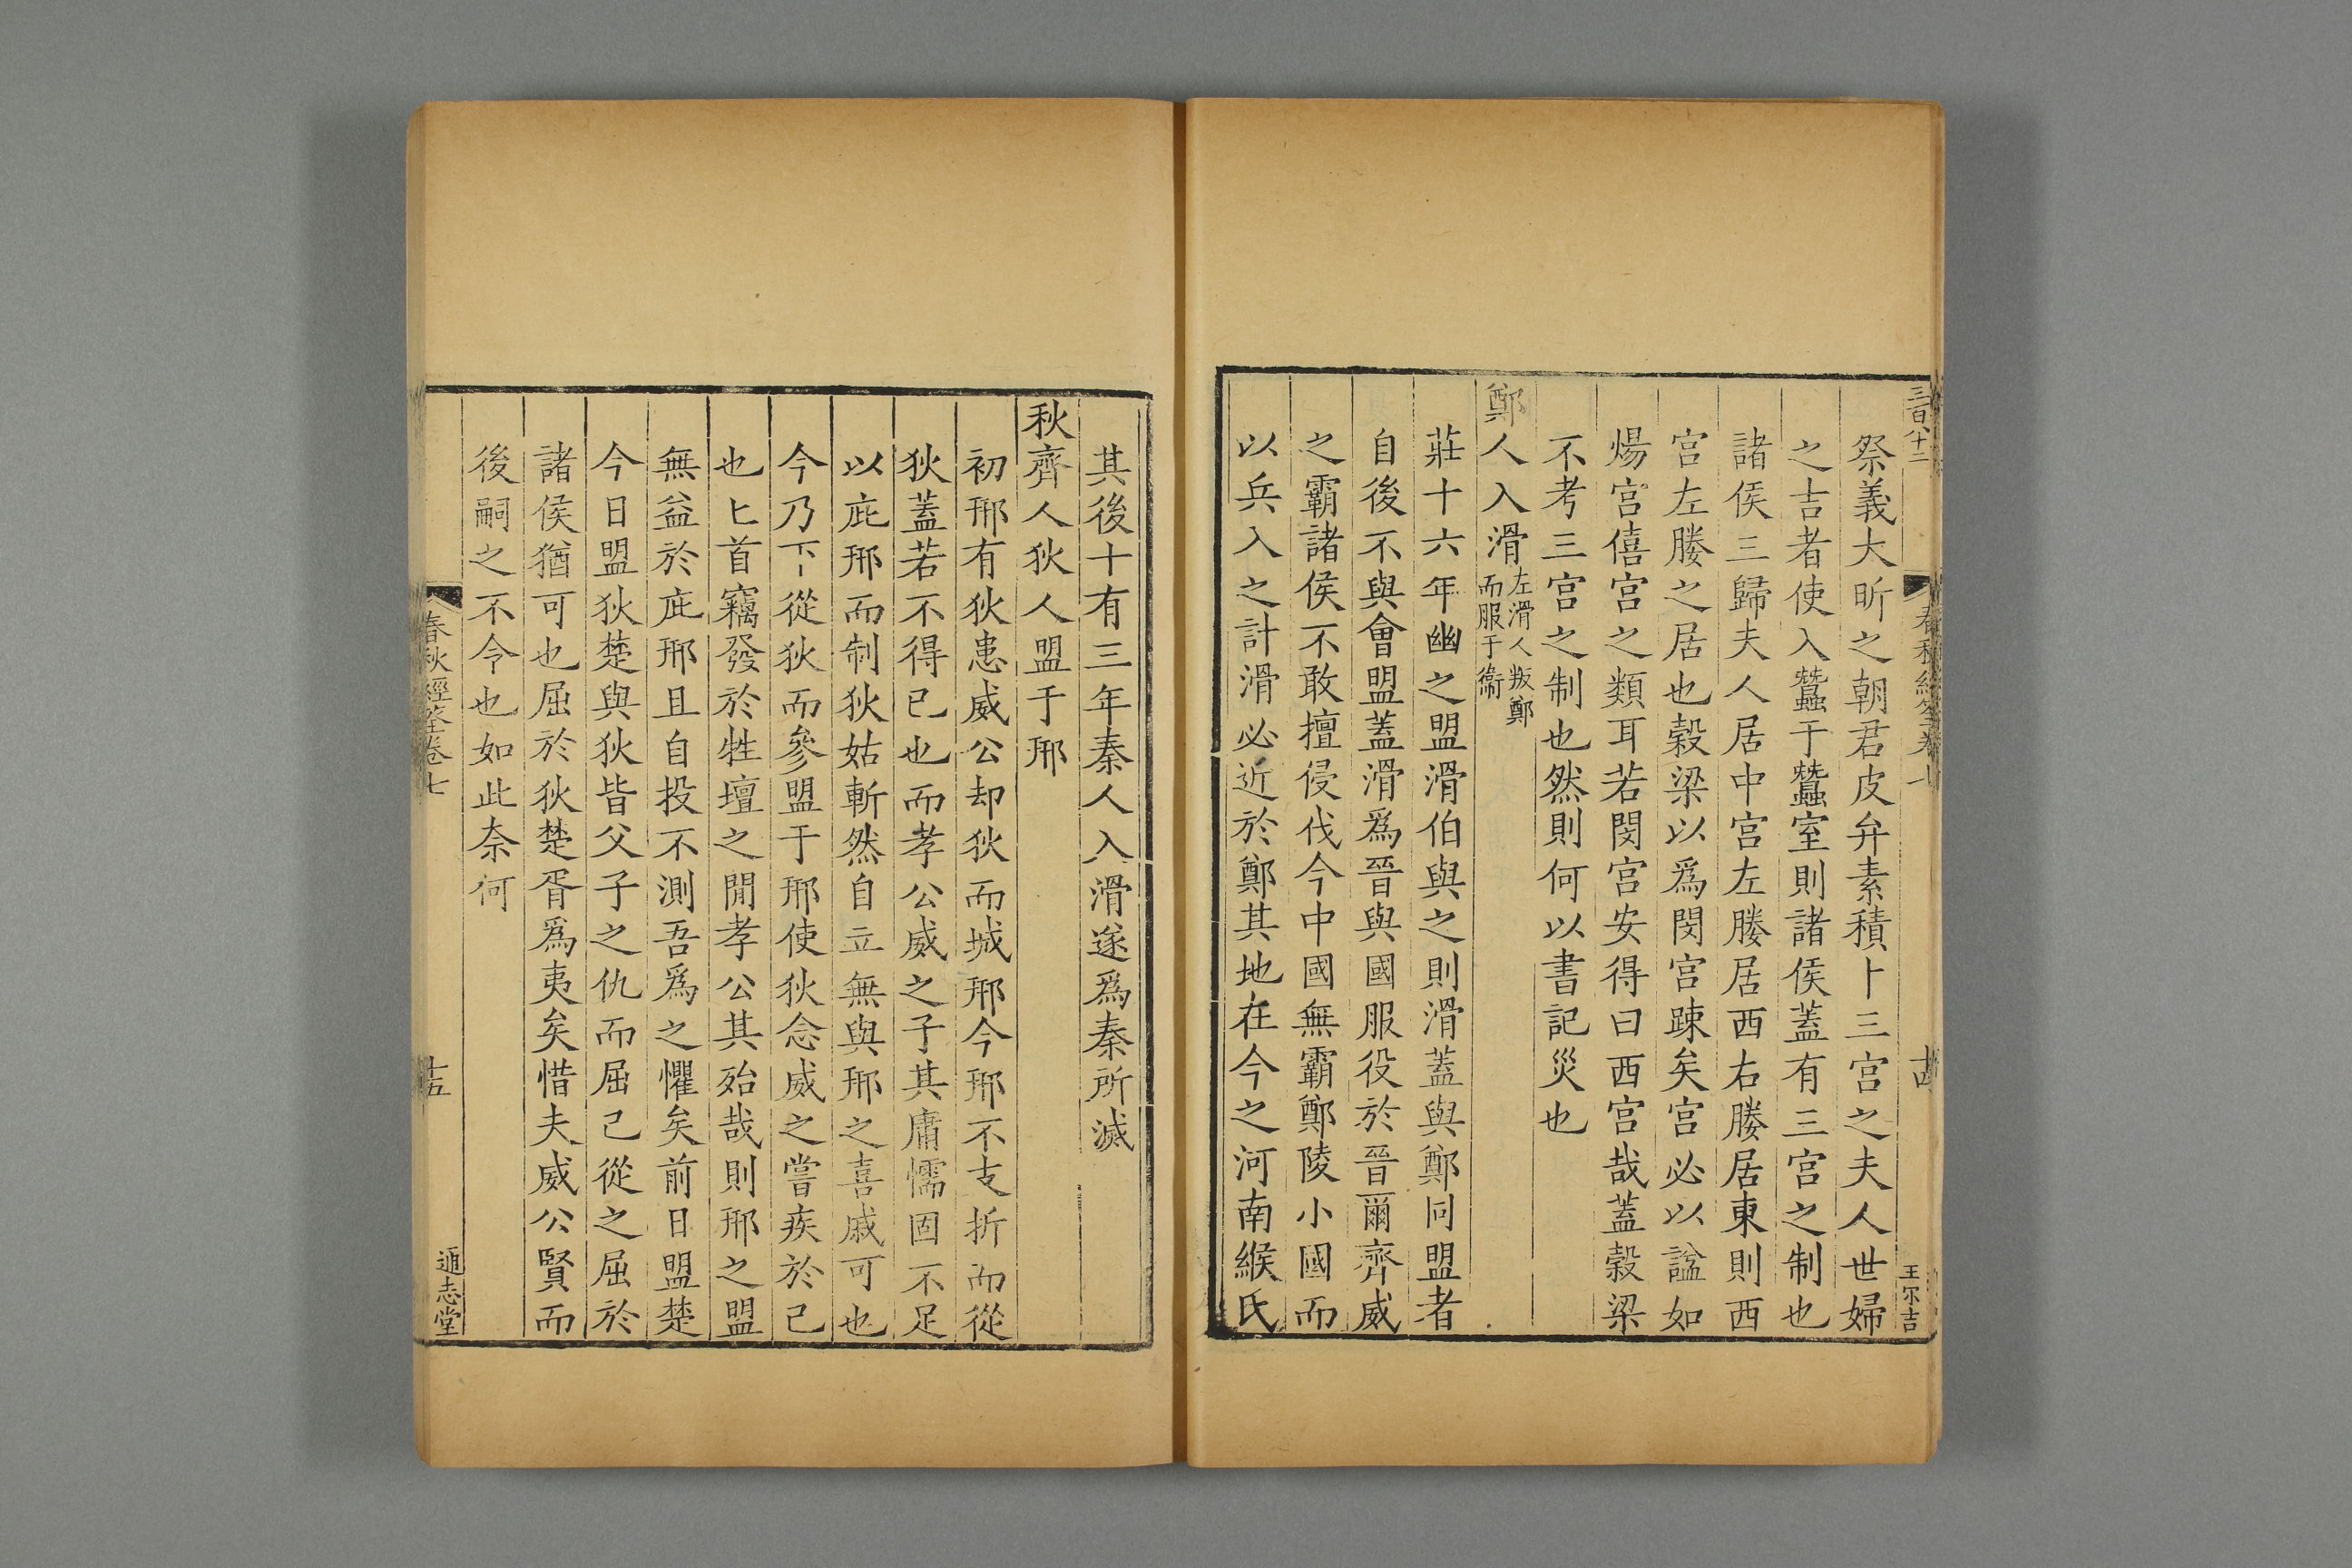 三百八十二
春秋經筌卷七
十四
王尔吉
祭義大昕之朝君皮弁素積卜三宫之夫人世婦
之吉者使入蠶于蠶室則諸侯蓋有三宫之制也
諸侯三歸夫人居中宫左媵居西右媵居東則西
宫左媵之居也穀梁以爲閔宫踈矣宫必以諡如
煬宫僖宫之類耳若閔宫安得曰西宫哉蓋穀梁
不考三宫之制也然則何以書記災也
鄭人入滑左滑人叛鄭
而服于衞
莊十六年幽之盟滑伯與之則滑蓋與鄭同盟者
自後不與會盟蓋滑爲晉與國服役於晉爾齊威
之霸諸侯不敢擅侵伐今中國無霸鄭陵小國而
以兵入之計滑必近於鄭其地在今之河南緱氏
其後十有三年秦人入滑遂爲秦所滅
秋齊人狄人盟于邢
初邢有狄患威公却狄而城邢今邢不支折而從
狄蓋若不得已也而孝公威之子其庸懦固不足
以庇邢而制狄姑斬然自立無與邢之喜戚可也
今乃下從狄而參盟于邢使狄念威之嘗疾於己
也匕首竊發於牲壇之間孝公其殆哉則邢之盟
無益於庇邢且自投不測吾爲之懼矣前日盟楚
今日盟狄楚與狄皆父子之仇而屈己從之屈於
諸侯猶可也屈於狄楚胥爲夷矣惜夫威公賢而
後嗣之不令也如此柰何
春秋經筌卷七
十五
通志堂